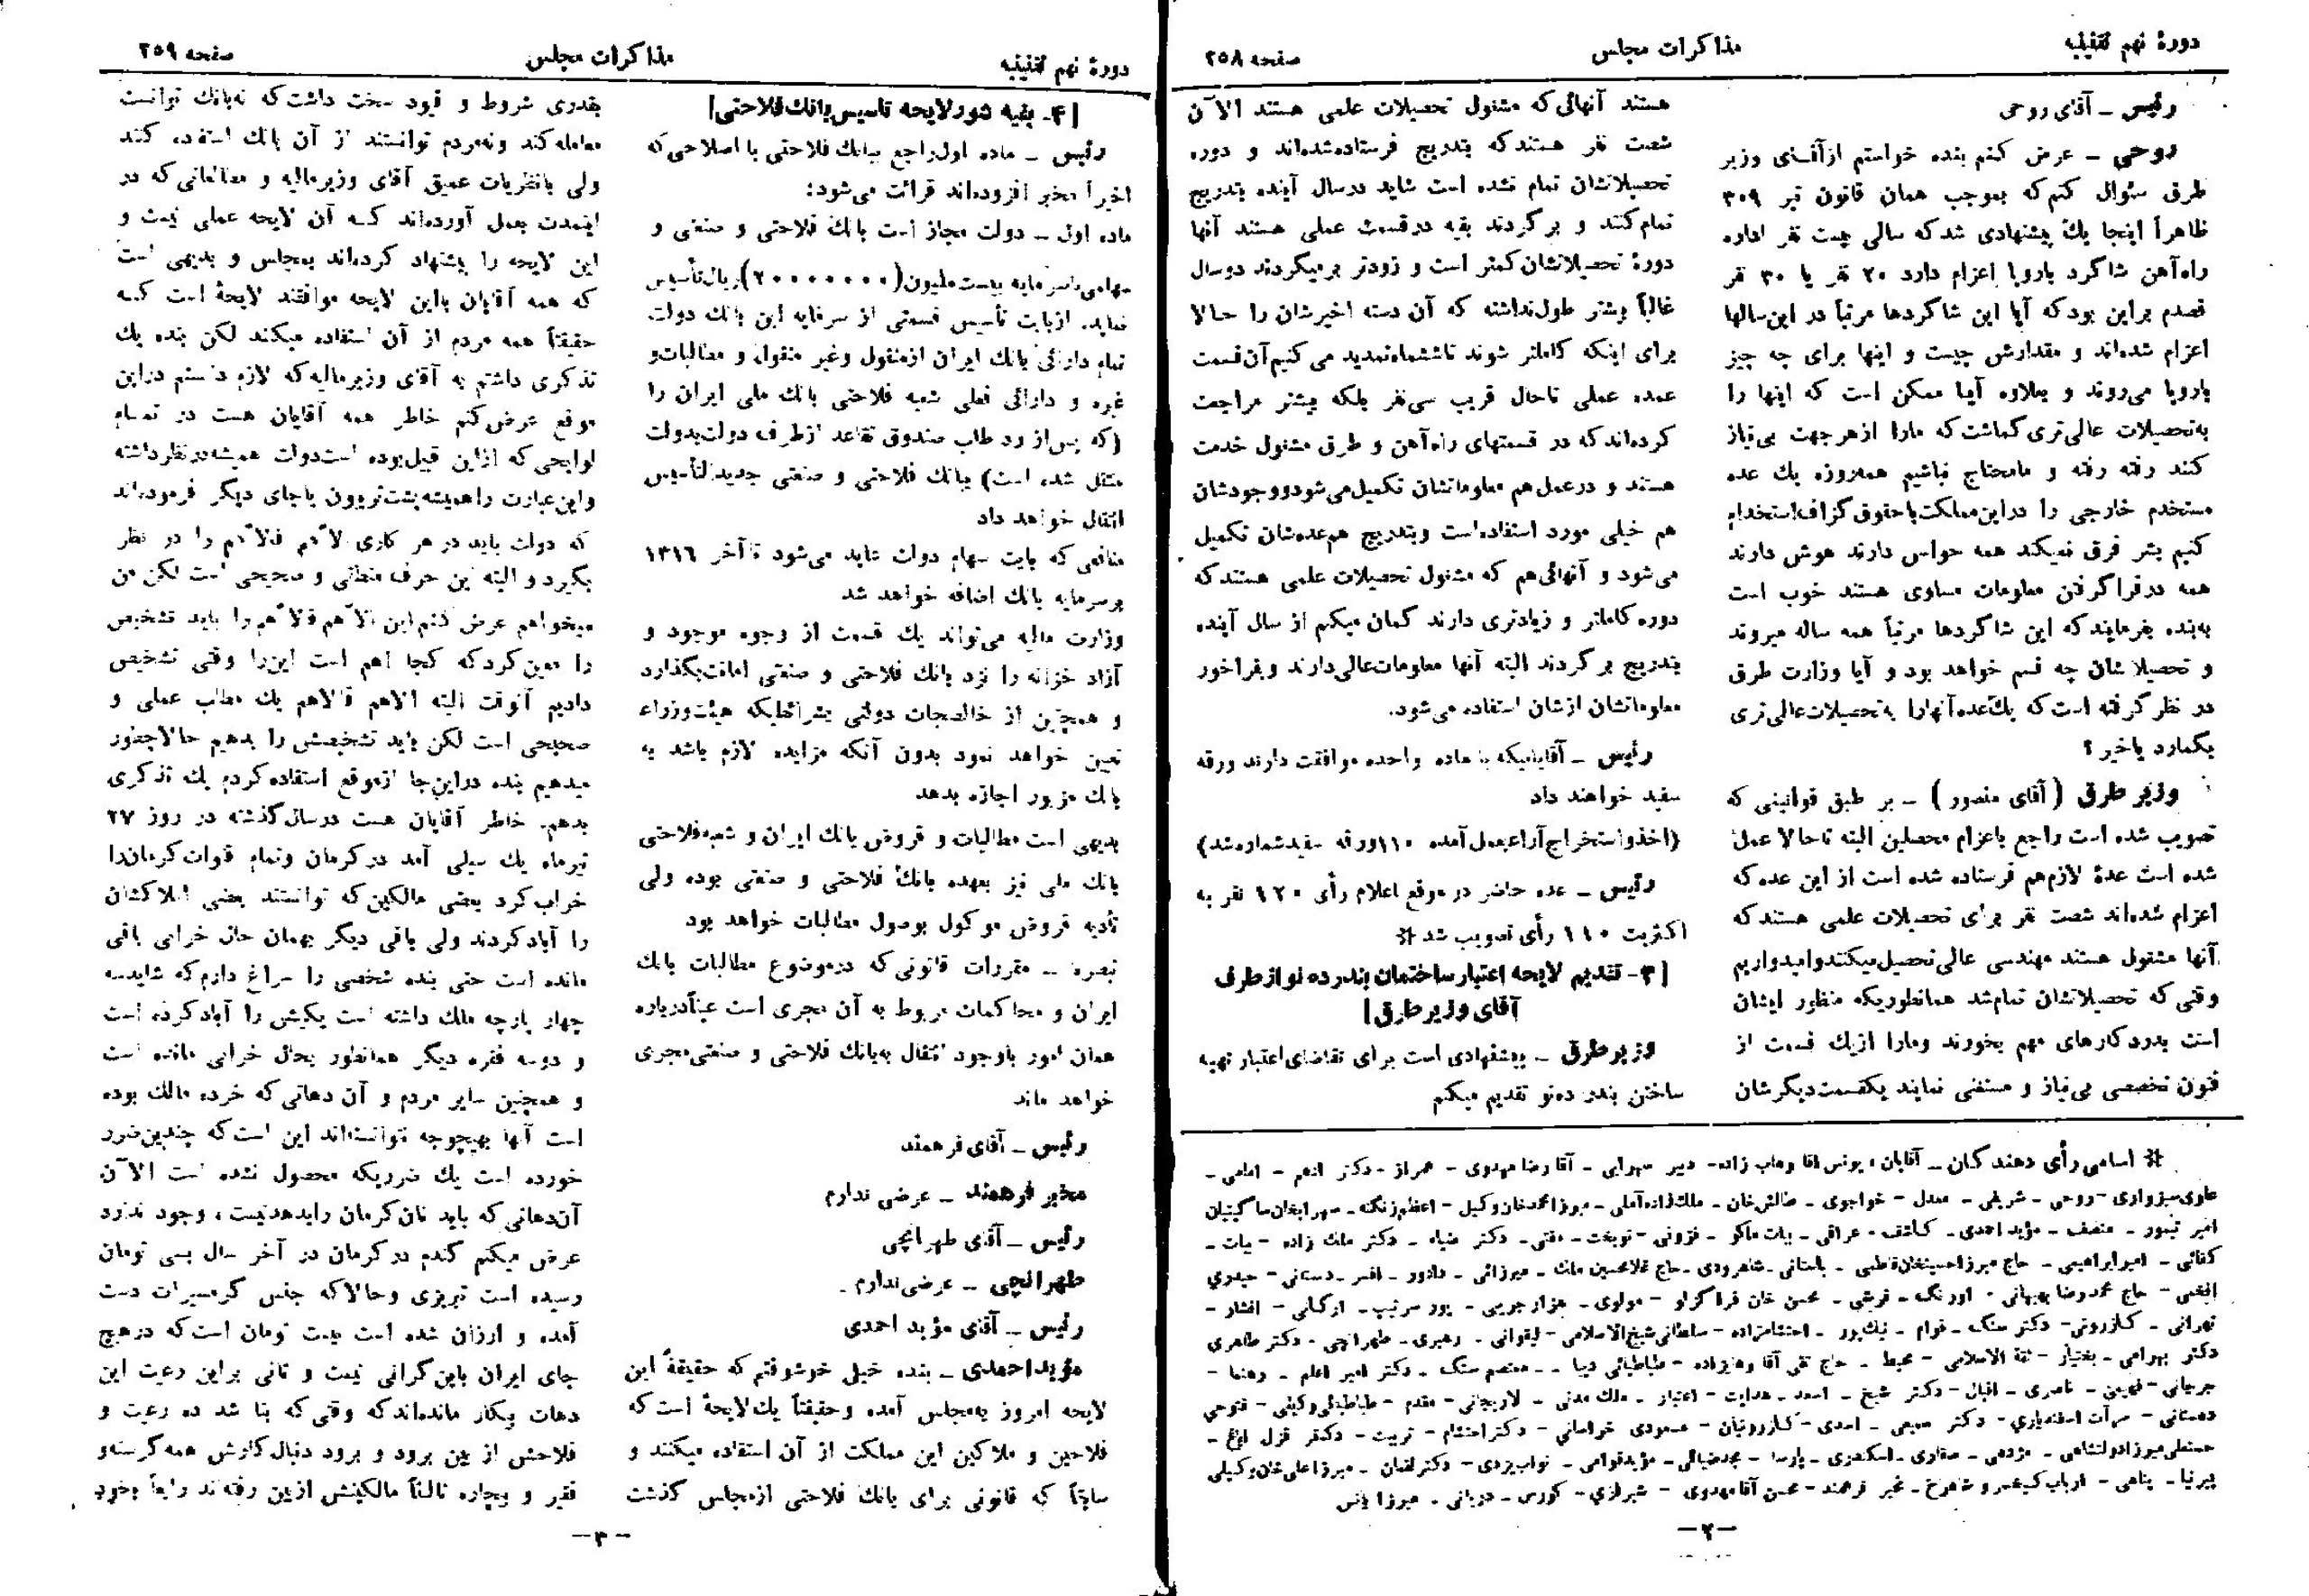 دورۀ نهم تقنینیه
مذاکرات مجلس
صفحه ۲۵۸
رئیس ــ آقای روحی
روحی ــ عرض کنم بنده خواستم ازآقای وزیر
طرق سئوال کنم که بموجب همان قانون تیر ۳۰۹
ظاهراً اینجا یك پیشنهادی شد که سالی بیست نفر اداره
راه‌آهن شاگرد باروپا اعزام دارد ۲۰ نفر یا ۳۰ نفر
قصدم براین بود که آیا این شاگردها مرتباً در این‌سالها
اعزام شده‌اند و مقدارش چیست و اینها برای چه چیز
باروپا می‌روند و بعلاوه آیا ممکن است که اینها را
به‌تحصیلات عالی‌تری گماشت که مارا ازهرجهت بی‌نیاز
کنند رفته رفته و مامحتاج نباشیم همه‌روزه یك عده
مستخدم خارجی را دراین‌مملکت باحقوق گزاف‌استخدام
کنیم بشر فرق نمیکند همه حواس دارند هوش دارند
همه درفراگرفتن معلومات مساوی هستند خوب است
به‌بنده بفرمایند که این شاگردها مرتباً همه ساله میروند
و تحصیلاتشان چه قسم خواهد بود و آیا وزارت طرق
در نظر گرفته است که یك‌عده‌آنهارا به‌تحصیلات‌عالی‌تری
بگمارد یاخیر ؟
وزیر طرق (آقای منصور) ــ بر طبق قوانینی که
تصویب شده است راجع باعزام محصلین البته تاحالا عمل
شده است عدۀ لازم‌هم فرستاده شده است از این عده که
اعزام شده‌اند شصت نفر برای تحصیلات علمی هستند که
آنها مشغول هستند مهندسی عالی‌تحصیل‌میکنندوامیدواریم
وقتی که تحصیلاتشان تمام‌شد همانطوریکه منظور ایشان
است بدرد کارهای مهم بخورند ومارا ازیك قسمت از
فنون تخصصی بی‌نیاز و مستغنی نمایند یکقسمت‌دیگرشان
هستند آنهائی‌که مشغول تحصیلات علمی هستند الآن
شصت نفر هستند که بتدریج فرستاده‌شده‌اند و دوره
تحصیلاتشان تمام نشده است شاید درسال آینده بتدریج
تمام‌کنند و برگردند بقیه درقسمت عملی هستند آنها
دورۀ تحصیلاتشان کمتر است و زودتر برمیگردند دوسال
غالباً بیشتر طول‌نداشته که آن دسته اخیرشان را حالا
برای اینکه کاملتر شوند تاششماه‌تمدید می‌کنیم‌آن‌قسمت
عمده عملی تاحال قریب سی‌نفر بلکه بیشتر مراجعت
کرده‌اند که در قسمتهای راه‌آهن و طرق مشغول خدمت
هستند و درعمل‌هم معلوماتشان تکمیل‌می‌شودووجودشان
هم خیلی مورد استفاده‌است وبتدریج هم‌عده‌شان تکمیل
می‌شود و آنهائی‌هم که مشغول تحصیلات علمی هستند که
دوره کاملتر و زیادتری دارند گمان میکنم از سال آینده
بتدریج برگردند البته آنها معلومات‌عالی‌دارند وبفراخور
معلوماتشان ازشان استفاده می‌شود.
رئیس ــ آقایانیکه با ماده واحده موافقت دارند ورقه
سفید خواهند داد
(اخذواستخراج‌آراءبعمل‌آمده ۱۱۰ورقه سفیدشماره‌شد)
رئیس ــ عده حاضر در موقع اعلام رأی ۱۲۰ نفر به
اکثریت ۱۱۰ رأی تصویب شد *
[۳ـ تقدیم لایحه اعتبار ساختمان بندر ده نو از طرف
آقای وزیر طرق]
وزیرطرق ــ پیشنهادی است برای تقاضای‌اعتبار تهیه
ساختن بندر ده‌نو تقدیم میکنم
* اسامی رأی دهندگان ــ آقایان : یونس‌آقا وهاب زاده- دبیر سهرابی - آقا رضا مهدوی - همراز - دکتر ادهم - امامی -
علوی‌سبزواری - روحی - شریفی - معدل - خواجوی - طالش‌خان - ملك‌زاده‌آملی - میرزامحمدخان وکیل - اعظم‌زنگنه - سهرابخان‌ساگینیان
امیر تیمور - منصف - مؤید احمدی - کاشف - عراقی - بیات ماکو - فزونی - نوبخت - مفتی - دکتر ضیاء - دکتر ملك زاده - بیات -
کفائی - امیرابراهیمی - حاج میرزاحسینخان‌فاطمی - باستانی - شاهرودی - حاج غلامحسین ملك - میرزائی - دادور - افسر - دستائی - حیدری
افخمی - حاج محمدرضا بهبهانی - اورنگ - قرشی - محسن خان قراگزلو - مولوی - هزارجریبی - پور سرتیپ - ارکانی - افشار -
تهرانی - کازرونی - دکتر سنگ - قوام - نیك‌پور - احتشام‌زاده - سلطانی‌شیخ‌الاسلامی - لیقوانی - رهبری - طهرانچی - دکتر طاهری
دکتر بهرامی - بختیار - ثقة الاسلامی - محیط - حاج تقی آقا وهابزاده - طباطبائی دیبا - معتصم سنگ - دکتر امیر اعلم - رهنما -
جرجانی - فهیمی - ناصری - اقبال - دکتر شیخ - اسعد - هدایت - اعتبار - ملك مدنی - لاریجانی - مقدم - طباطبائی‌وکیلی - فتوحی
دهستانی - مرآت اسفندیاری - دکتر سمیعی - اسدی - کازرونیان - مسعودی خراسانی - دکتراحتشام - تربیت - دکتر قزل ایاغ -
حسنعلی‌میرزادولتشاهی - مؤدعی - صفاری - اسکندری - پارسا - مجدضیائی - مؤیدقوامی - نواب‌یزدی - دکترلقمان - میرزاعلی‌خان‌وکیلی
پیرنیا - پناهی - ارباب کیخسرو شاهرخ - مخبر فرهمند - محسن آقامهدوی - شیرازی - کورس - دربانی - میرزا یانس
ــ۲ــ
دورۀ نهم تقنینیه
مذاکرات مجلس
صفحه ۲۵۹
[۴ـ بقیه شورلایحه تاسیس بانك فلاحتی]
رئیس ــ ماده اول‌راجع ببانك فلاحتی با اصلاحی‌که
اخیراً مخبر افزوده‌اند قرائت می‌شود:
ماده اول ــ دولت مجاز است بانك فلاحتی و صنعتی و
سهامی‌باسرمایه بیست‌ملیون(۲۰۰۰۰۰۰۰)ریال‌تأسیس
نماید. ازبابت تأسیس قسمتی از سرمایه این بانك دولت
تمام دارائی بانك ایران ازمنقول وغیر منقول و مطالبات‌و
غیره و دارائی فعلی شعبه فلاحتی بانك ملی ایران را
(که پس‌از رد طلب صندوق تقاعد ازطرف دولت‌بدولت
منتقل شده است) ببانك فلاحتی و صنعتی جدیدالتأسیس
انتقال خواهد داد
منافعی که بابت سهام دولت عاید می‌شود تاآخر ۱۳۱۶
برسرمایه بانك اضافه خواهد شد
وزارت مالیه می‌تواند یك قسمت از وجوه موجود و
آزاد خزانه را نزد بانك فلاحتی و صنعتی امانت‌بگذارد
و همچنین از خالصجات دولتی بشرائطیکه هیئت‌وزراء
تعیین خواهد نمود بدون آنکه مزایده لازم باشد به
بانك مزبور اجازه بدهد
بدیهی است مطالبات و قروض بانك ایران و شعبه‌فلاحتی
بانك ملی نیز بعهده بانك فلاحتی و صنعتی بوده ولی
تأدیه قروض موکول بوصول مطالبات خواهد بود
تبصره ــ مقررات قانونی‌که درموضوع مطالبات بانك
ایران و محاکمات مربوط به آن مجری است عیناًدرباره
همان امور باوجود انتقال به‌بانك فلاحتی و صنعتی‌مجری
خواهد ماند
رئیس ــ آقای فرهمند
مخبر فرهمند ــ عرضی ندارم
رئیس ــ آقای طهرانچی
طهرانچی ــ عرضی‌ندارم.
رئیس ــ آقای مؤید احمدی
مؤیداحمدی ــ بنده خیلی خوشوقتم که حقیقةً این
لایحه امروز به‌مجلس آمده وحقیقتاً یك‌لایحۀ است‌که
فلاحین و ملاکین این مملکت از آن استفاده میکنند و
سابقاً که قانونی برای بانك فلاحتی ازمجلس گذشت
بقدری شروط و قیود سخت داشت که نه‌بانك توانست
معامله‌کند ونه‌مردم توانستند از آن بانك استفاده کنند
ولی بانظریات عمیق آقای وزیرمالیه و مطالعاتی‌که در
اینمدت بعمل آورده‌اند که آن لایحه عملی نیست و
این لایحه را پیشنهاد کرده‌اند بمجلس و بدیهی است
که همه آقایان بااین لایحه موافقند لایحۀ است که
حقیقتاً همه مردم از آن استفاده میکنند لکن بنده یك
تذکری داشتم به آقای وزیرمالیه‌که لازم دانستم دراین
موقع عرض‌کنم خاطر همه آقایان هست در تمام
لوایحی‌که ازاین قبیل‌بوده است‌دولت همیشه‌درنظرداشته
واین‌عبارت راهمیشه‌پشت‌تریبون یاجای دیگر فرموده‌اند
که دولت باید در هر کاری الأهم فالأهم را در نظر
بگیرد و البته این حرف منطقی و صحیحی است لکن من
میخواهم عرض کنم‌این الأهم فالأهم‌را باید تشخیص
را معین‌کرد که کجا اهم است این‌را وقتی تشخیص
دادیم آنوقت البته الاهم فالاهم یك مطلب عملی و
صحیحی است لکن باید تشخیصش را بدهیم حالاچطور
میدهیم بنده دراین‌جا ازموقع استفاده‌کردم یك تذکری
بدهم. خاطر آقایان هست درسال‌گذشته در روز ۲۷
تیرماه یك سیلی آمد درکرمان وتمام قنوات‌کرمان‌را
خراب‌کرد بعضی مالکین‌که توانستند بعضی املاکشان
را آبادکردند ولی باقی دیگر بهمان حال خرابی باقی
مانده است حتی بنده شخصی را سراغ دارم‌که شایدسه
چهار پارچه ملك داشته است یکیش را آبادکرده است
و دوسه فقره دیگر همانطور بحال خرابی مانده است
و همچنین سایر مردم و آن دهاتی‌که خرده مالك بوده
است آنها بهیچوجه نتوانسته‌اند این است‌که چندین‌ضرر
خورده است یك ضرریکه محصول نشده است الآن
آن‌دهاتی‌که باید نان‌کرمان رابدهدنیست، وجود ندارد
عرض میکنم گندم درکرمان در آخر سال بسی تومان
رسیده است تبریزی وحالاکه جنس گرمسیرات دست
آمده و ارزان شده است بیست تومان است‌که درهیچ
جای ایران باین‌گرانی نیست و ثانی براین رعیت این
دهات بیکار مانده‌اندکه وقتی‌که بنا شد ده رعیت و
فلاحش از بین برود و برود دنبال‌کارش همه‌گرسنه‌و
فقیر و بیچاره ثالثاً مالکینش ازبین رفته‌اند رابعاً بخود
ــ۳ــ